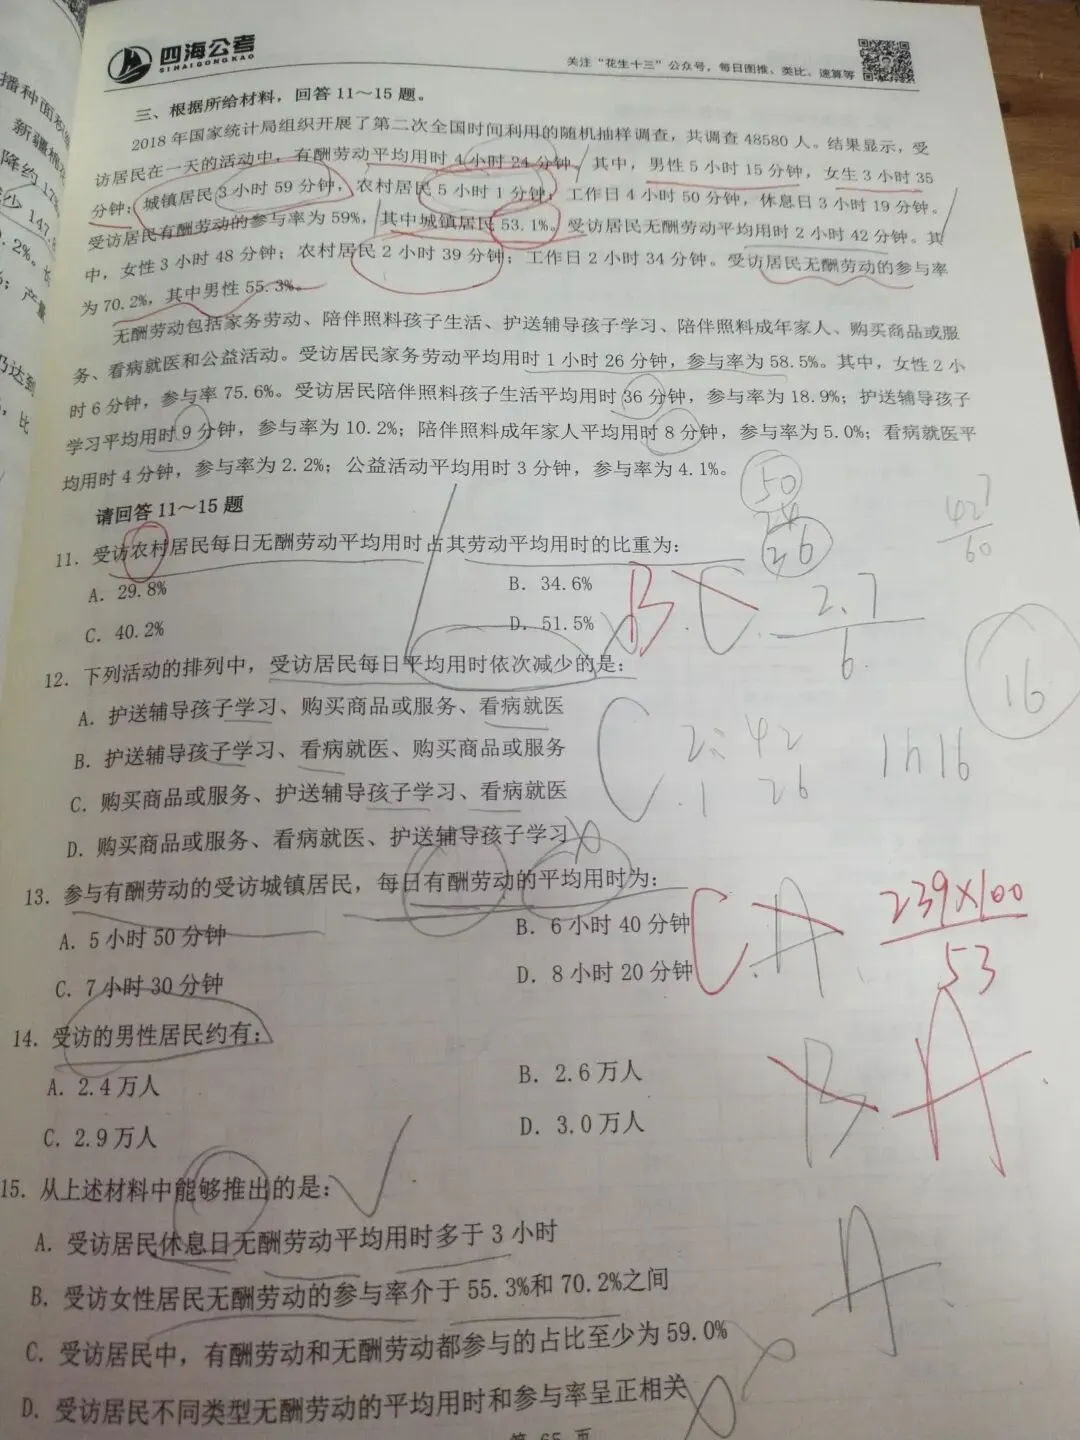 四海公考
SIHAIGONGKAO
关注“花生十三”公众号，每日图推、类比、速算等
播种面积
新疆棉
降约17%
少147.
.2%。长
；产量
乃达到
，比
三、根据所给材料，回答11～15题。
2018年国家统计局组织开展了第二次全国时间利用的随机抽样调查，共调查48580人。结果显示，受
访居民在一天的活动中，有酬劳动平均用时4小时24分钟。其中，男性5小时15分钟，女生3小时35
分钟；城镇居民3小时59分钟，农村居民5小时1分钟；工作日4小时50分钟，休息日3小时19分钟。
受访居民有酬劳动的参与率为59%，其中城镇居民53.1%。受访居民无酬劳动平均用时2小时42分钟。其
中，女性3小时48分钟；农村居民2小时39分钟；工作日2小时34分钟。受访居民无酬劳动的参与率
为70.2%，其中男性55.3%。
无酬劳动包括家务劳动、陪伴照料孩子生活、护送辅导孩子学习、陪伴照料成年家人、购买商品或服
务、看病就医和公益活动。受访居民家务劳动平均用时1小时26分钟，参与率为58.5%。其中，女性2小
时6分钟，参与率75.6%。受访居民陪伴照料孩子生活平均用时36分钟，参与率为18.9%；护送辅导孩子
学习平均用时9分钟，参与率为10.2%；陪伴照料成年家人平均用时8分钟，参与率为5.0%；看病就医平
均用时4分钟，参与率为2.2%；公益活动平均用时3分钟，参与率为4.1%。
请回答11～15题
50
24
36
427
60
11. 受访农村居民每日无酬劳动平均用时占其劳动平均用时的比重为：
A. 29.8%
B. 34.6%
C. 40.2%
D. 51.5%
B. C.
2.7
6
16
12. 下列活动的排列中，受访居民每日平均用时依次减少的是：
A. 护送辅导孩子学习、购买商品或服务、看病就医
B. 护送辅导孩子学习、看病就医、购买商品或服务
C. 购买商品或服务、护送辅导孩子学习、看病就医
D. 购买商品或服务、看病就医、护送辅导孩子学习
C
2:42
1 26
1h16
13. 参与有酬劳动的受访城镇居民，每日有酬劳动的平均用时为：
A. 5小时50分钟
B. 6小时40分钟
C. 7小时30分钟
D. 8小时20分钟
C. A.
239×100
53
14. 受访的男性居民约有：
A. 2.4万人
B. 2.6万人
C. 2.9万人
D. 3.0万人
B A
15. 从上述材料中能够推出的是：
A. 受访居民休息日无酬劳动平均用时多于3小时
B. 受访女性居民无酬劳动的参与率介于55.3%和70.2%之间
C. 受访居民中，有酬劳动和无酬劳动都参与的占比至少为59.0%
D. 受访居民不同类型无酬劳动的平均用时和参与率呈正相关
A.
第 65 页